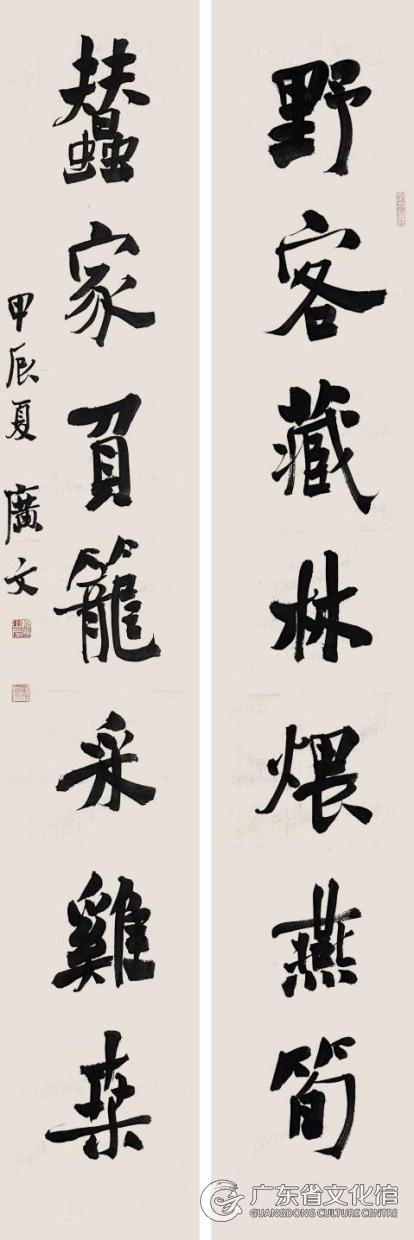 野客藏林煨燕筍
蠶家負籠采雞桒
甲辰夏 廣文
广东省文化馆
GUANGDONG CULTURE CENTRE